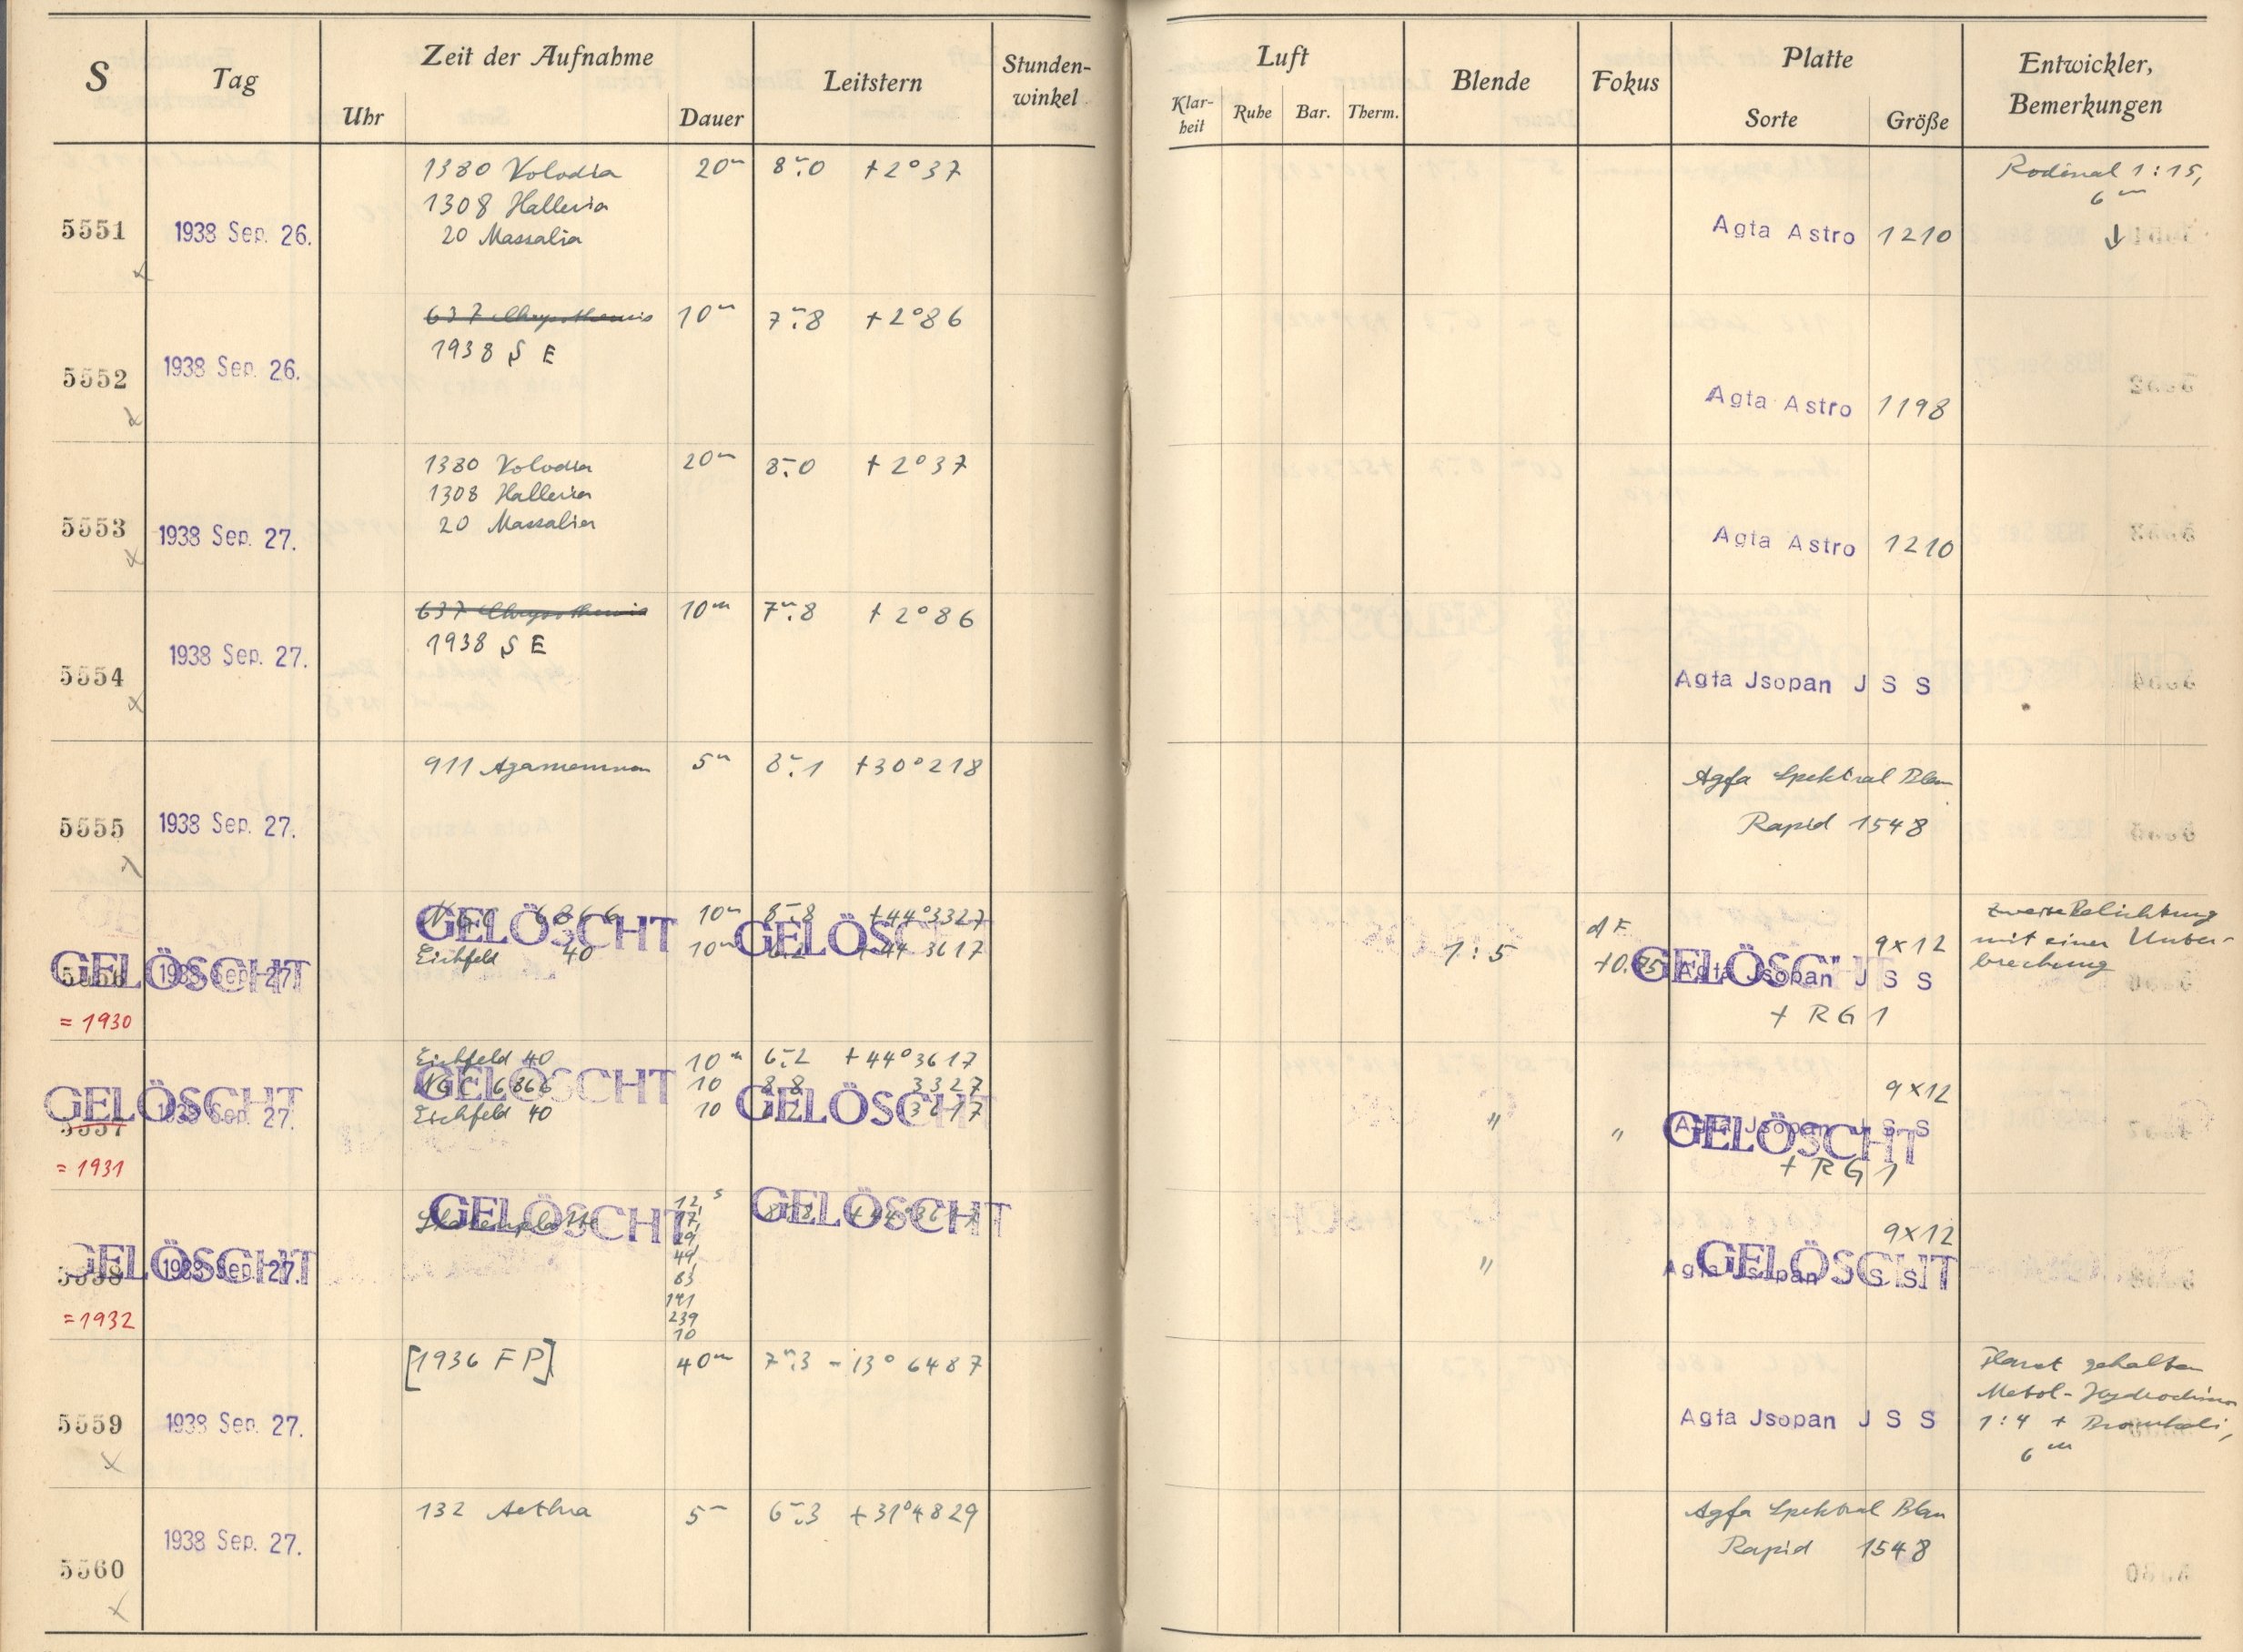 S Tag Zeit der Aufnahme Leitstern Stunden-
winkel
Uhr Dauer
Luft Blende Fokus Platte Entwickler,
Bemerkungen
Klar-
heit Ruhe Bar. Therm. Sorte Größe
1380 Volodia 20m 8m.0 +2°37 Rodinal 1:15,
1308 Halleria 6m
5551 1938 Sep. 26. 20 Massalia Agfa Astro 1210 ↓
637 Chrysothemis 10m 7m.8 +2°86
1938 S E
5552 1938 Sep. 26. Agfa Astro 1198
1380 Volodia 20m 8m.0 +2°37
1308 Halleria
20 Massalia
5553 1938 Sep. 27. Agfa Astro 1210
637 Chrysothemis 10m 7m.8 +2°86
1938 S E
5554 1938 Sep. 27. Agfa Jsopan J S S
911 Agamemnon 5m 8m.1 +30°218 Agfa Spektral Blau
5555 1938 Sep. 27. Rapid 1548
NGC 6866 10m 8m.8 +44°3327 zweite Belichtung
GELÖSCHT GELÖSCHT
Eichfeld 40 10m 6.2 +44 3617 1:5 +0.75 9x12 mit einer Unter-
brechung
5556 1938 Sep. 27. GELÖSCHT GELÖSCHT Agfa Jsopan J S S
= 1930 + RG 1
Eichfeld 40 10m 6m.2 +44°3617
NGC 6866 10 8.8 3327 9x12
GELÖSCHT GELÖSCHT GELÖSCHT
Eichfeld 40 10 6.2 3617
5557 1938 Sep. 27. " " Agfa Jsopan J S S
GELÖSCHT
= 1931 + RG 1
12s
GELÖSCHT GELÖSCHT
17
29 9x12
49
5558 1938 Sep. 27. GELÖSCHT 83 " Agfa Jsopan J S S GELÖSCHT
141
= 1932 239
10
[1936 FP] 40m 7m.3 -13° 6487 gehalten
Metol-Hydrochinon
5559 1938 Sep. 27. Agfa Jsopan J S S 1:4 + Bromkali,
6m
132 Aethra 5m 6m.3 +31°4829 Agfa Spektral Blau
5560 1938 Sep. 27. Rapid 1548